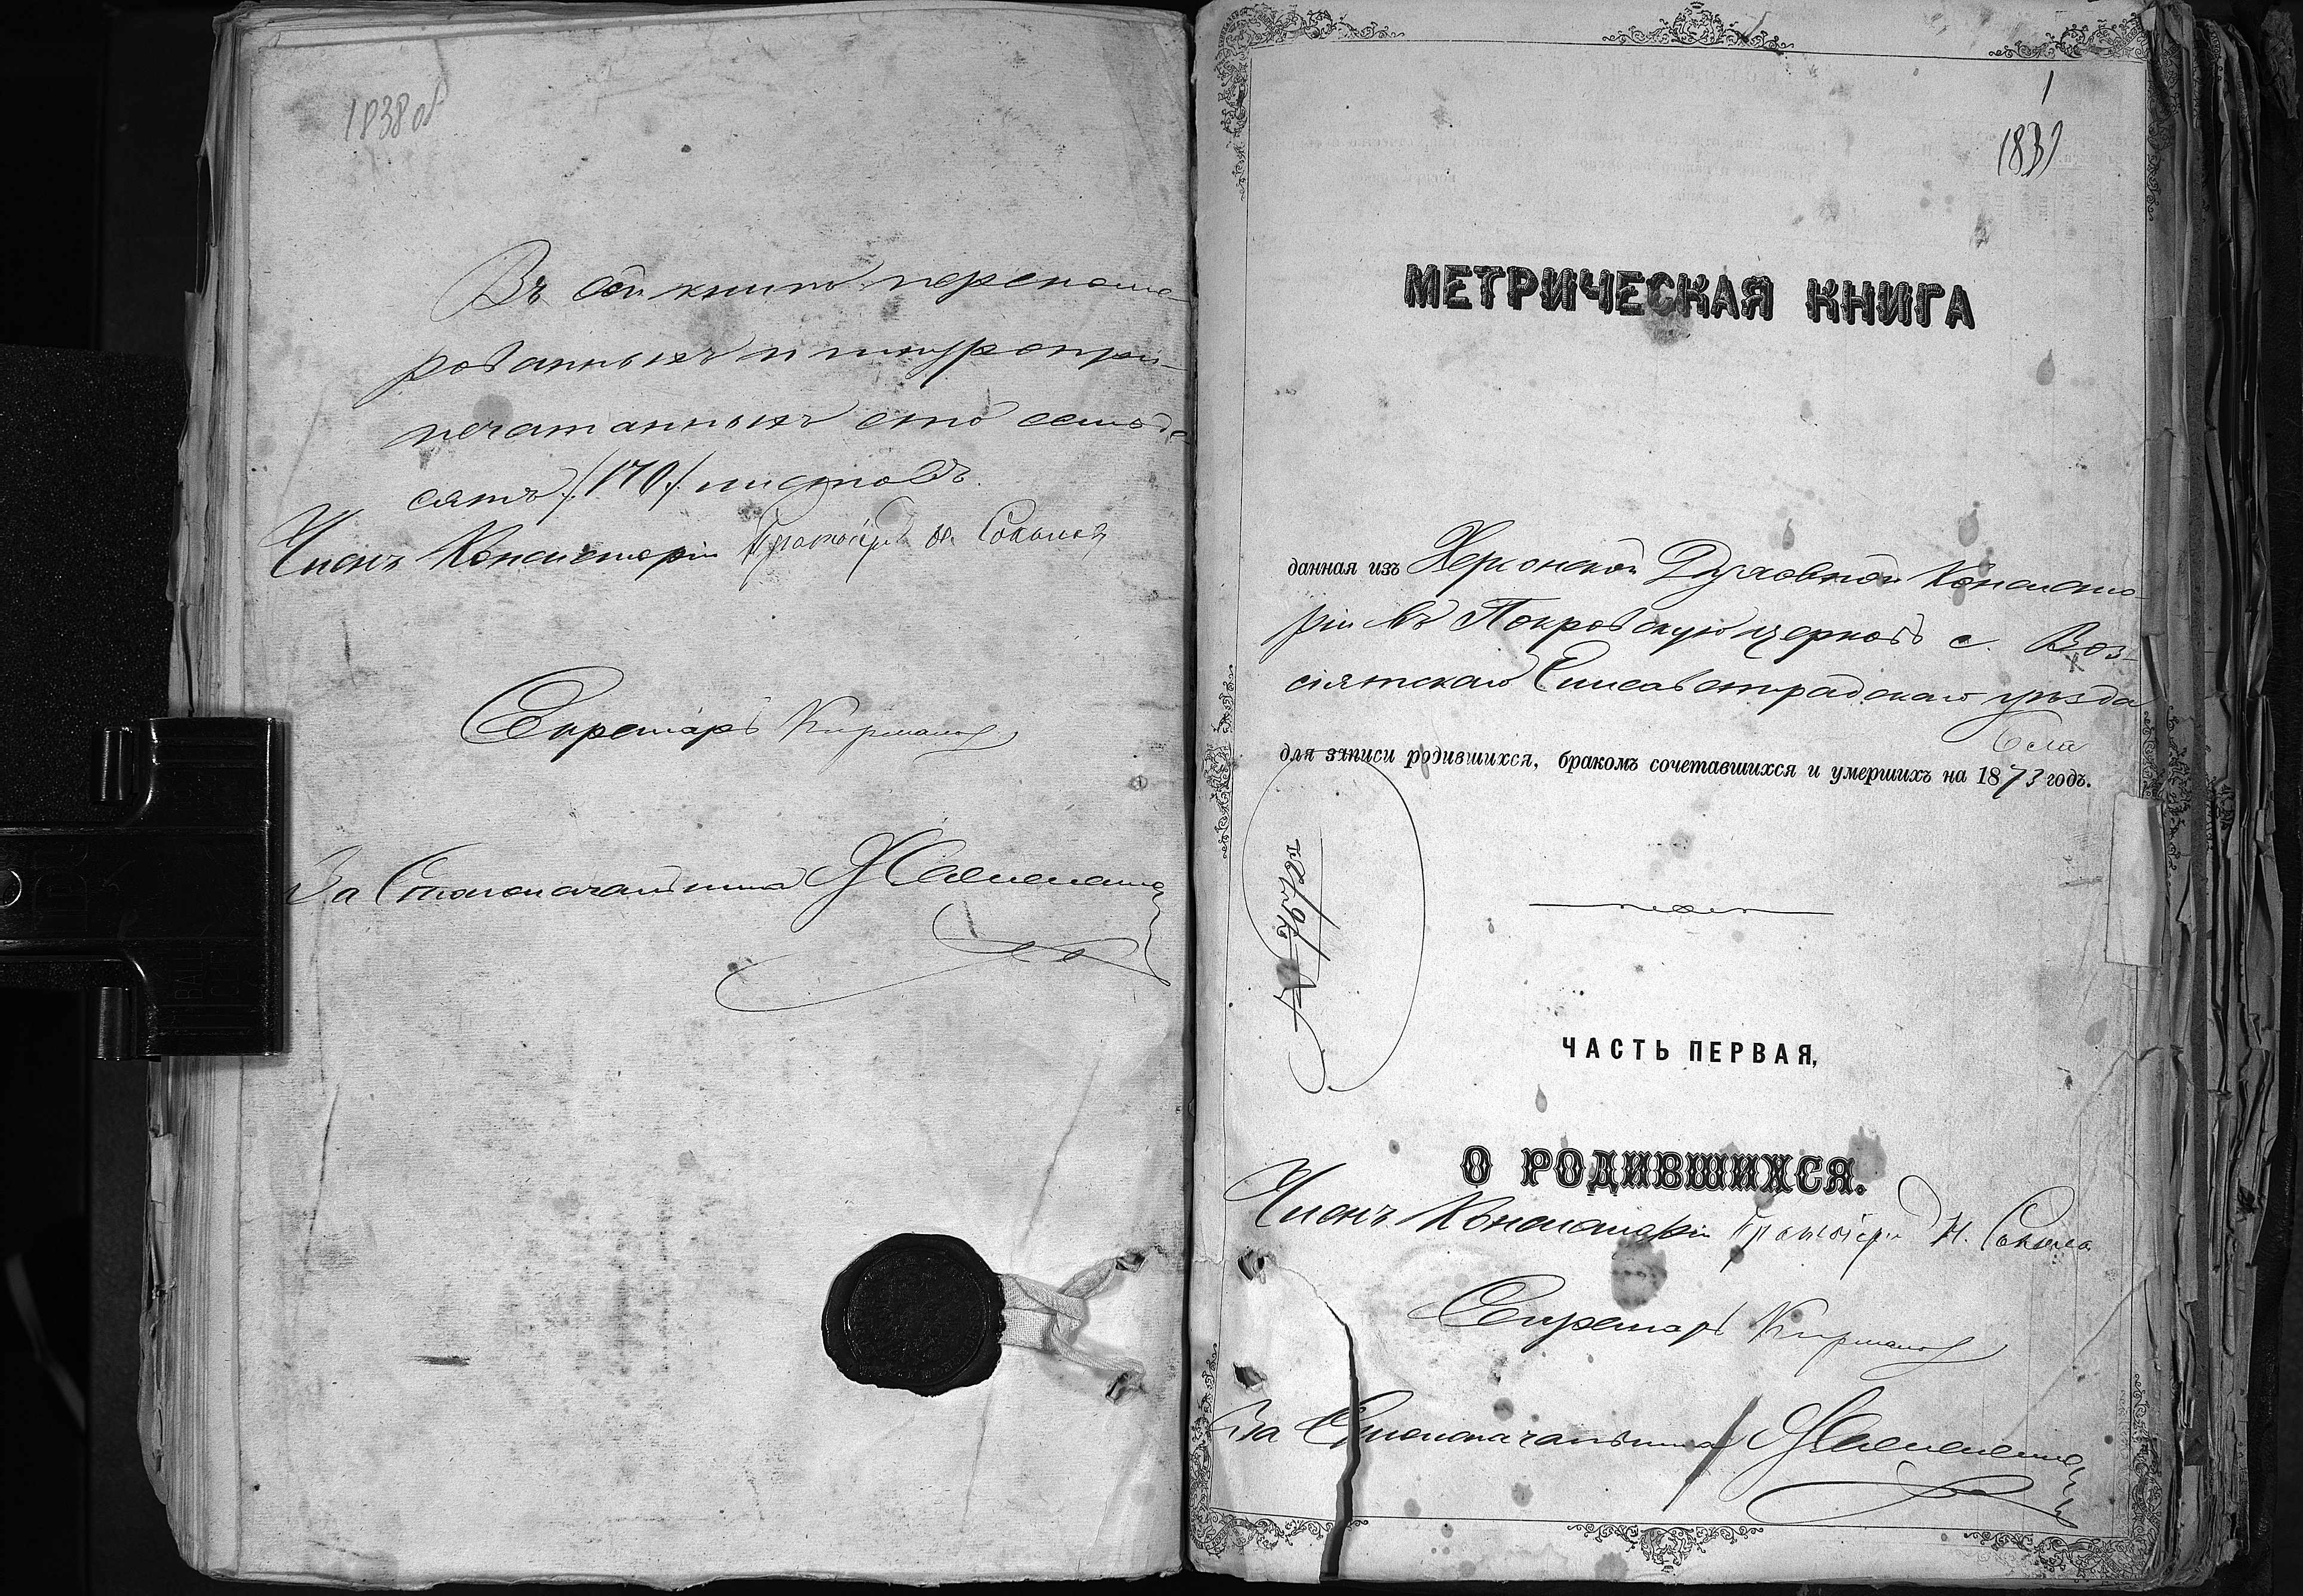 1838 об
Въ сей книгѣ перенуме-
рованныхъ и шнуропри-
печатанныхъ сто семьде-
сятъ /170/ листовъ.
Членъ Консисторіи Протоіерей
Секретарь
За Столоначальника
1
1839
МЕТРИЧЕСКАЯ КНИГА
данная изъ Херсонской Духовной Консисто-
ріи въ Покровскую церковь с. Воз-
сіятскаго Елисаветградскаго уѣзда
для записи родившихся, бракомъ сочетавшихся и умершихъ на 1873 годъ.
ЧАСТЬ ПЕРВАЯ,
О РОДИВШИХСЯ.
Членъ Консисторіи Протоіерей Н.
Секретарь
За Столоначальника